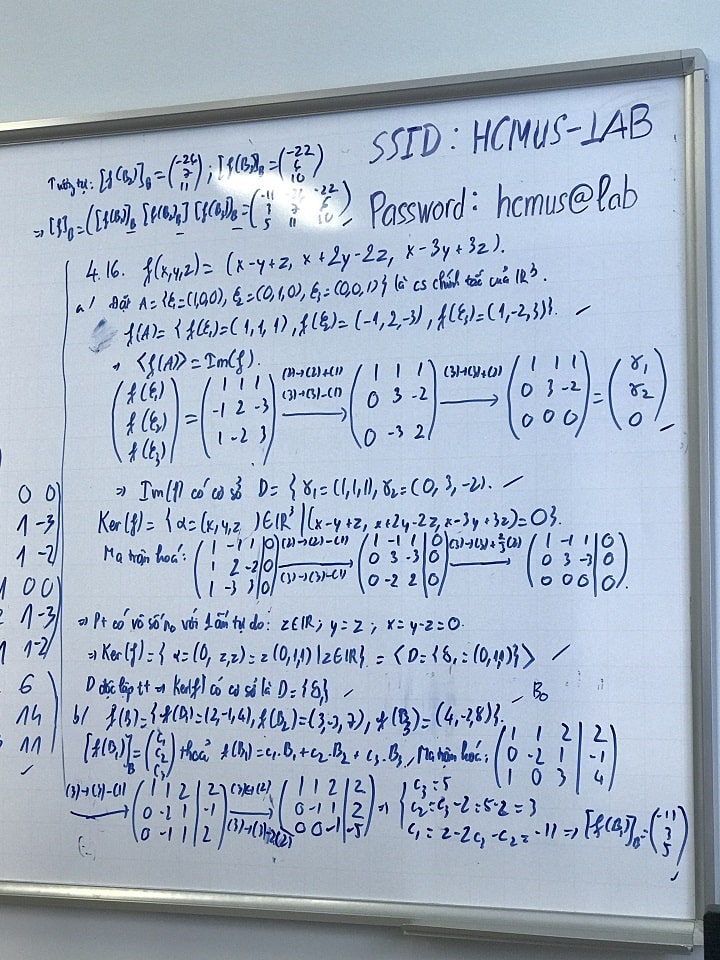 SSID: HCMUS-LAB
Password: hcmus@lab
Tương tự: [f(B₂)]_B = (-26 7 11); [f(B₃)]_B = (-22 6 10)
⇒ [f]_B = ([f(B₁)]_B [f(B₂)]_B [f(B₃)]_B = (-11 -26 -22 / 3 7 6 / 5 11 10)
4.16. f(x,y,z) = (x-y+z, x+2y-2z, x-3y+3z).
a/ Đặt A = {ε₁=(1,0,0), ε₂=(0,1,0), ε₃=(0,0,1)} là cs chính tắc của IR³.
f(A) = {f(ε₁)=(1,1,1), f(ε₂)=(-1,2,-3), f(ε₃)=(1,-2,3)}.
⇒ <f(A)> = Im(f).
(f(ε₁) / f(ε₂) / f(ε₃)) = (1 1 1 / -1 2 -3 / 1 -2 3) (2)→(2)+(1) (3)→(3)-(1) (1 1 1 / 0 3 -2 / 0 -3 2) (3)→(3)+(2) (1 1 1 / 0 3 -2 / 0 0 0) = (γ₁ / γ₂ / 0)
⇒ Im(f) có cơ sở D = {γ₁=(1,1,1), γ₂=(0,3,-2).
Ker(f) = {α=(x,y,z)∈IR³ | (x-y+z, x+2y-2z, x-3y+3z)=0}.
Ma trận hoá: (1 -1 1|0 / 1 2 -2|0 / 1 -3 3|0) (2)→(2)-(1) (3)→(3)-(1) (1 -1 1|0 / 0 3 -3|0 / 0 -2 2|0) (3)→(3)+⅔(2) (1 -1 1|0 / 0 3 -3|0 / 0 0 0|0).
⇒ Pt có vô số no với 1 ẩn tự do: z∈IR; y=z; x=y-z=0.
⇒ Ker(f) = {α=(0,z,z)=z(0,1,1)|z∈IR} = <D={δ₁=(0,1,1)}>
D độc lập tt ⇒ Ker(f) có cơ sở là D={δ₁}
B₀
b/ f(B) = {f(B₁)=(2,-1,4), f(B₂)=(3,-3,7), f(B₃)=(4,-2,8)}.
[f(B₁)]_B = (c₁ / c₂ / c₃) thoả f(B₁)=c₁.B₁+c₂.B₂+c₃.B₃, Ma trận hoá: (1 1 2|2 / 0 -2 1|-1 / 1 0 3|4)
(3)→(3)-(1) (1 1 2|2 / 0 -2 1|-1 / 0 -1 1|2) (3)↔(2) (3)→(3)+2(2) (1 1 2|2 / 0 -1 1|2 / 0 0 -1|-5) ⇒ {c₃=5
c₂=c₃-2=5-2=3
c₁=2-2c₃-c₂=-11 ⇒ [f(B₁)]_B=(-11 / 3 / 5)
0 0
1 -3
1 -2
1 0 0
2 1 -3
1 1 -2
6
14
11